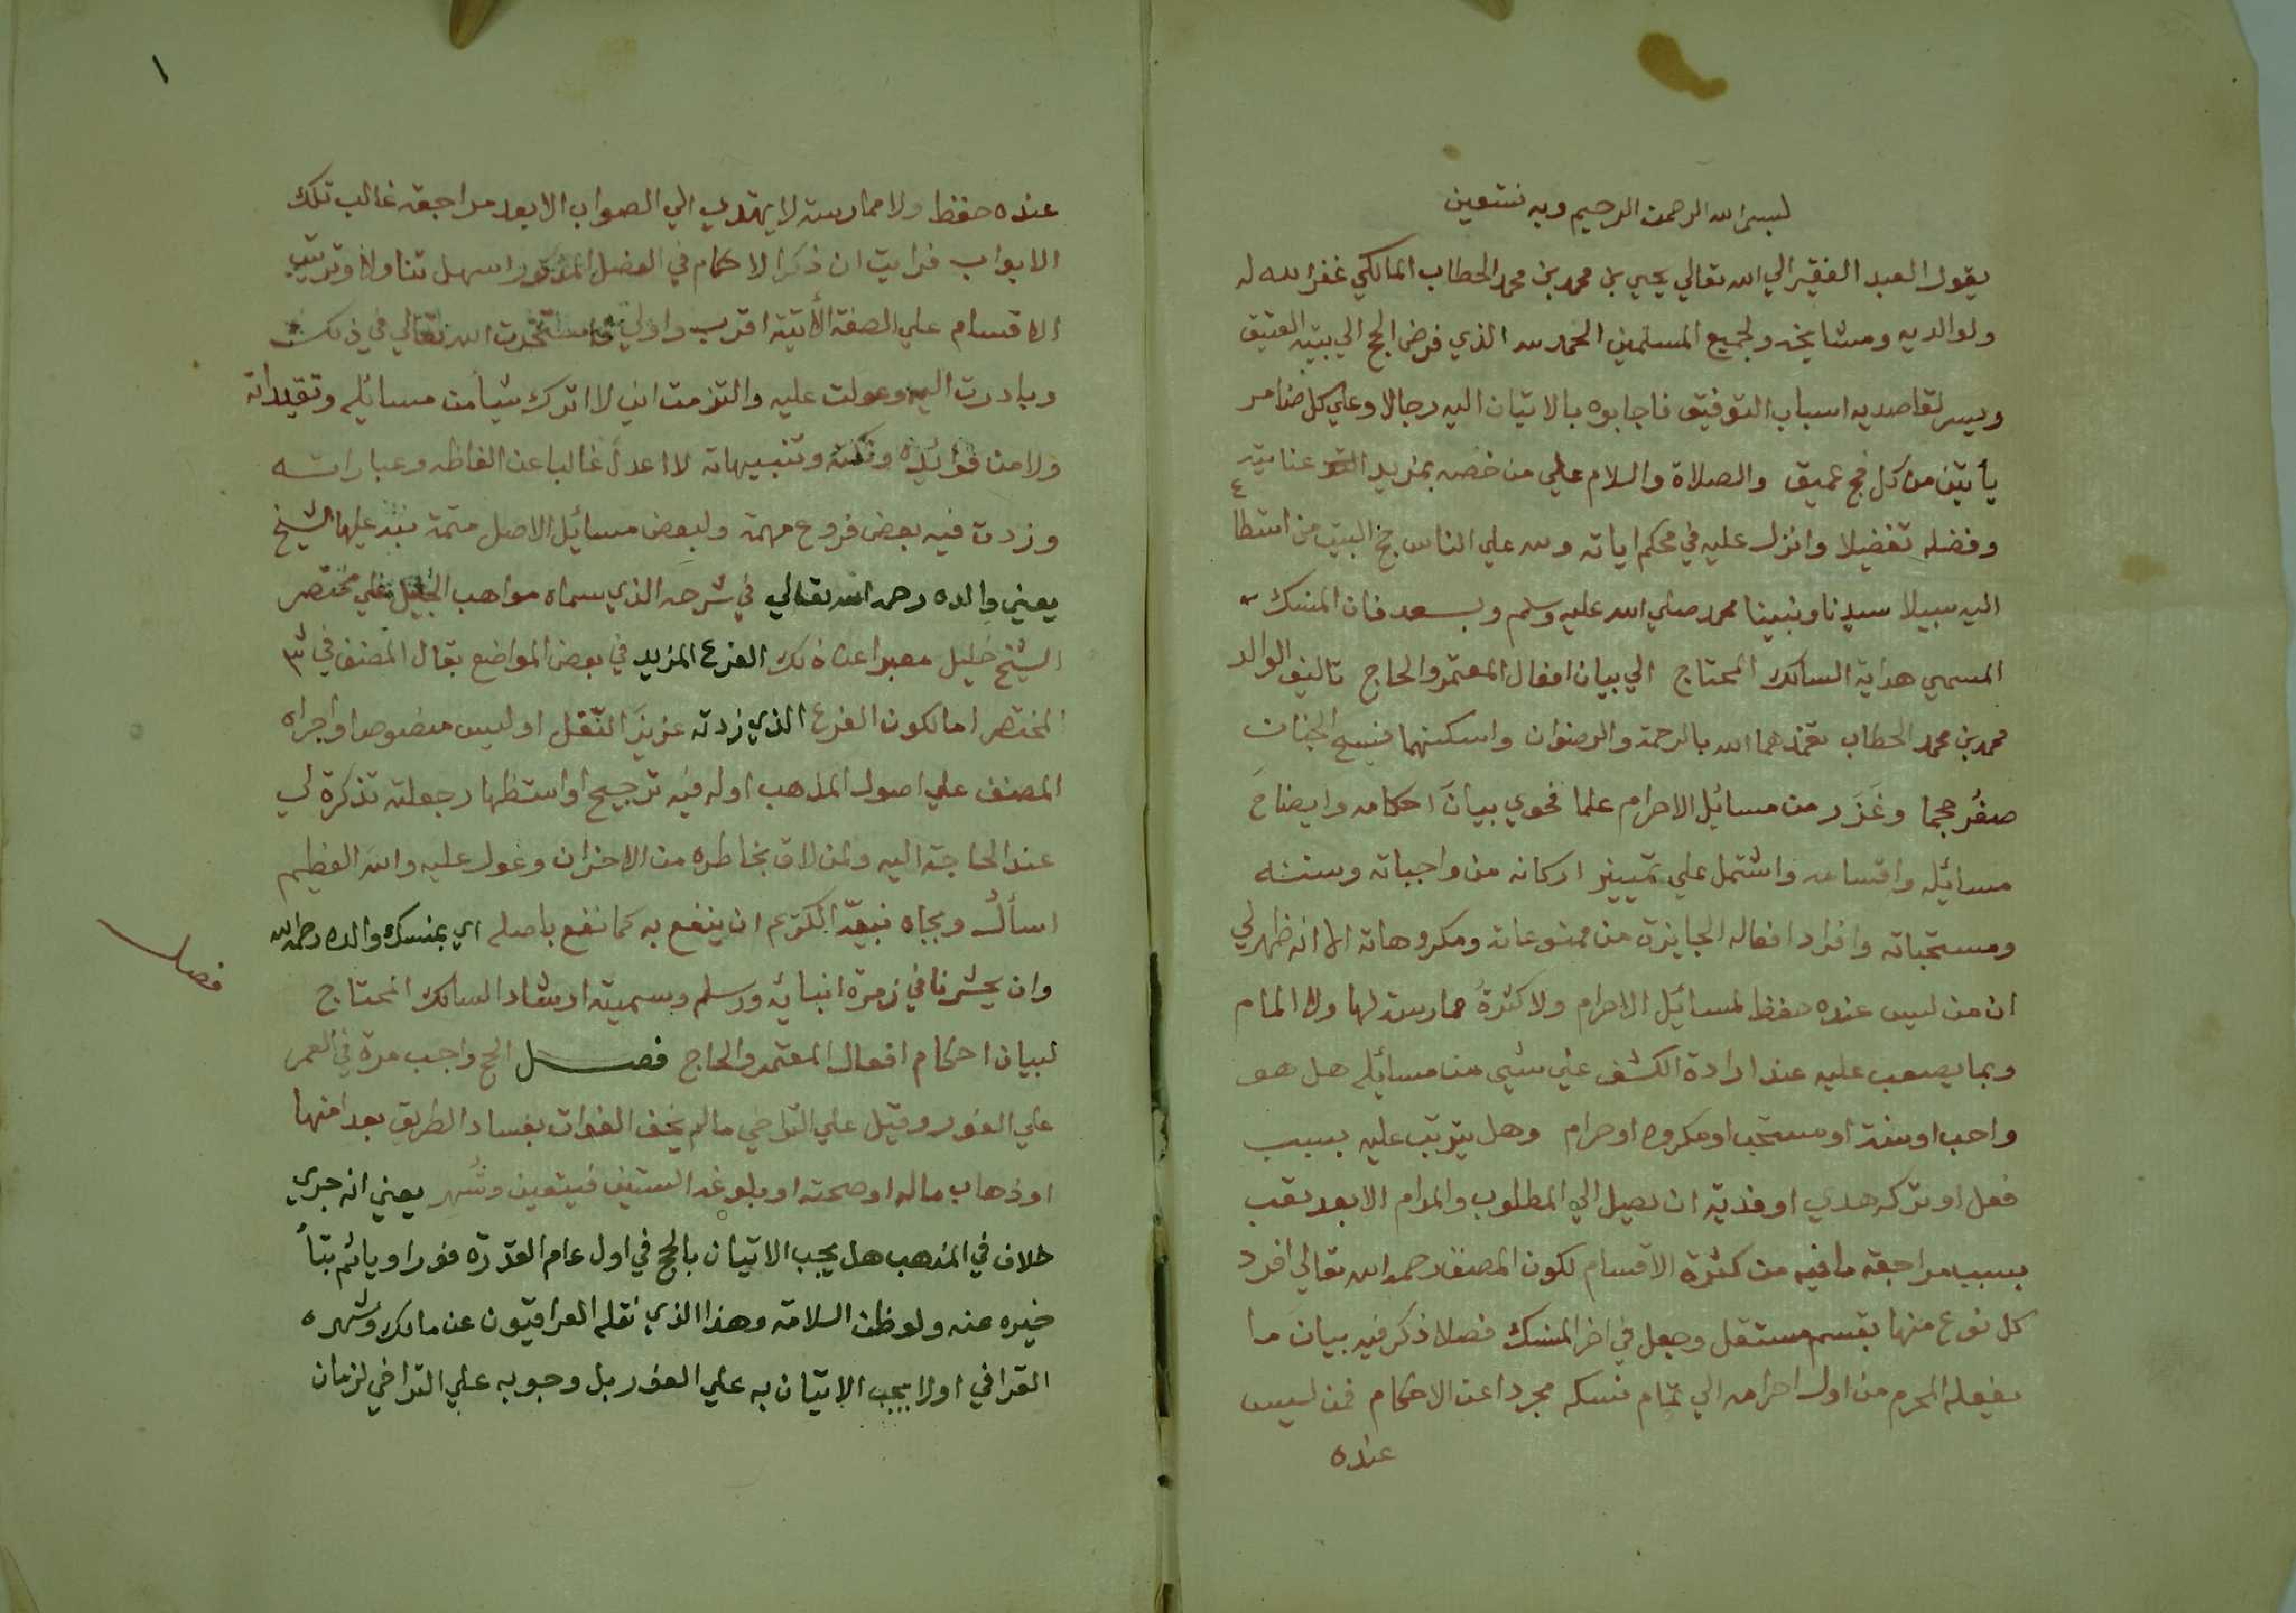 بسم الله الرحمن الرحيم وبه نستعين
يقول العبد الفقير الي الله تعالي يحيي بن محمد بن محمد الحطاب المالكي غفر الله له
ولوالديه ومشايخه ولجميع المسلمين الحمد لله الذي فرض الحج الي بيته العتيق
ويسر لقاصديه اسباب التوفيق فاجابوه بالاتيان اليه رجالا وعلي كل ضامر
يأتين من كل فج عميق والصلاة والسلام علي من خصه بمزيد عنايته
وفضله تفضيلا وانزل عليه في محكم اياته ولله علي الناس حج البيت من استطاع
اليه سبيلا سيدنا ونبينا محمد صلي الله عليه وسلم وبعد فان المنسك
المسمي هداية السالك المحتاج الي بيان افعال المعتمر والحاج تاليف الوالد
محمد بن محمد الحطاب تغمدهما الله بالرحمة والرضوان واسكنهما فسيح الجنات
صغُر حجما وغَزَر من مسائيل الاحرام علما فحوي بيانَ احكامه وايضاحَ
مسائيله واقسامه واشتمل علي تمييز اركانه من واجباته وسننه
ومستحباته وافراد افعاله الجايزة من ممنوعاته ومكروهاته الا انه ظهر لي
ان من ليس عنده حفظ لمسائيل الاحرام ولا كثرةُ ممارسة لها ولا المام
وبما يصعب عليه عند ارادة الكشف عن شيي من مسائيله هل هو
واجب او سنة او مستحب او مكروه او حرام وهل يترتب عليه بسبب
فعل او تركه هدي او فدية ان يصل الي المطلوب والمرام الا بعد تعب
بسبب مراجعة ما فيه من كثرة الاقسام لكون المصنف رحمه الله تعالي افرد
كل نوع منها بقسم مستقل وجعل في اخر المنسك فصلا ذكر فيه بيان ما
يفعله المحرم من اول احرامه الي تمام نسكه مجردا عن الاحكام فمن ليس
عنده
١
عنده حفظ ولا ممارسة لا يهتدي الي الصواب الا بعد مراجعة غالب تلك
الابواب فرايت ان ذكر الاحكام في الفصل المذكور اسهل تناولا وترتيب
الاقسام علي الصفة الأتية اقرب واولي فاستخرت الله تعالي في ذلك
وبادرت اليه وعولت عليه والتزمت اني لا اترك شيأ من مسائيله وتقييداته
ولا من فوائيده ونكته وتنبيهاته لا اعدل غالبا عن الفاظه وعباراته
وزدت فيه بعض فروع مهمة ولبعض مسائيل الاصل متمة نبه عليها الشيخ
يعني والده رحمه الله تعالي في شرحه الذي سماه مواهب الجليل علي مختصر
الشيخ خليل معبرا عن ذلك الفرع المزيد في بعض المواضع بقال المصنف في شرح
المختصر اما لكون الفرع الذي زدته عزيزَ النّقل او ليس منصوصا واجراه
المصنف علي اصول المذهب او له فيه ترجيح او استظهار جعلته تذكرة لي
عند الحاجة اليه ولمن لاق بخاطره من الاخوان وعول عليه والله العظيم
اسألُ وبجاه نبيّه الكريم ان ينفع به كما نفع باصله اي بمنسك والده رحمه الله
وان يحشرنا في زمرة انبيائه ورسله وسميته ارشاد السالك المحتاج
لبيان احكام افعال المعتمر والحاج فصل الحج واجب مرة في العمر
فصل
علي الفور وقيل علي التراخي ما لم يخف الفوات بفساد الطريق بعد امنها
او ذهاب ماله او صحته او بلوغه الستين فيتعين وشُهر يعني انه جري
خلاف في المذهب هل يجب الاتيان بالحج في اول عام القدرة فورا وياثم بتأ
خيره عنه ولو ظن السلامة وهذا الذي نقله العراقيون عن مالك وشهره
القرافي او لا يجب الاتيان به علي الفور بل وجوبه علي التراخي لزمان